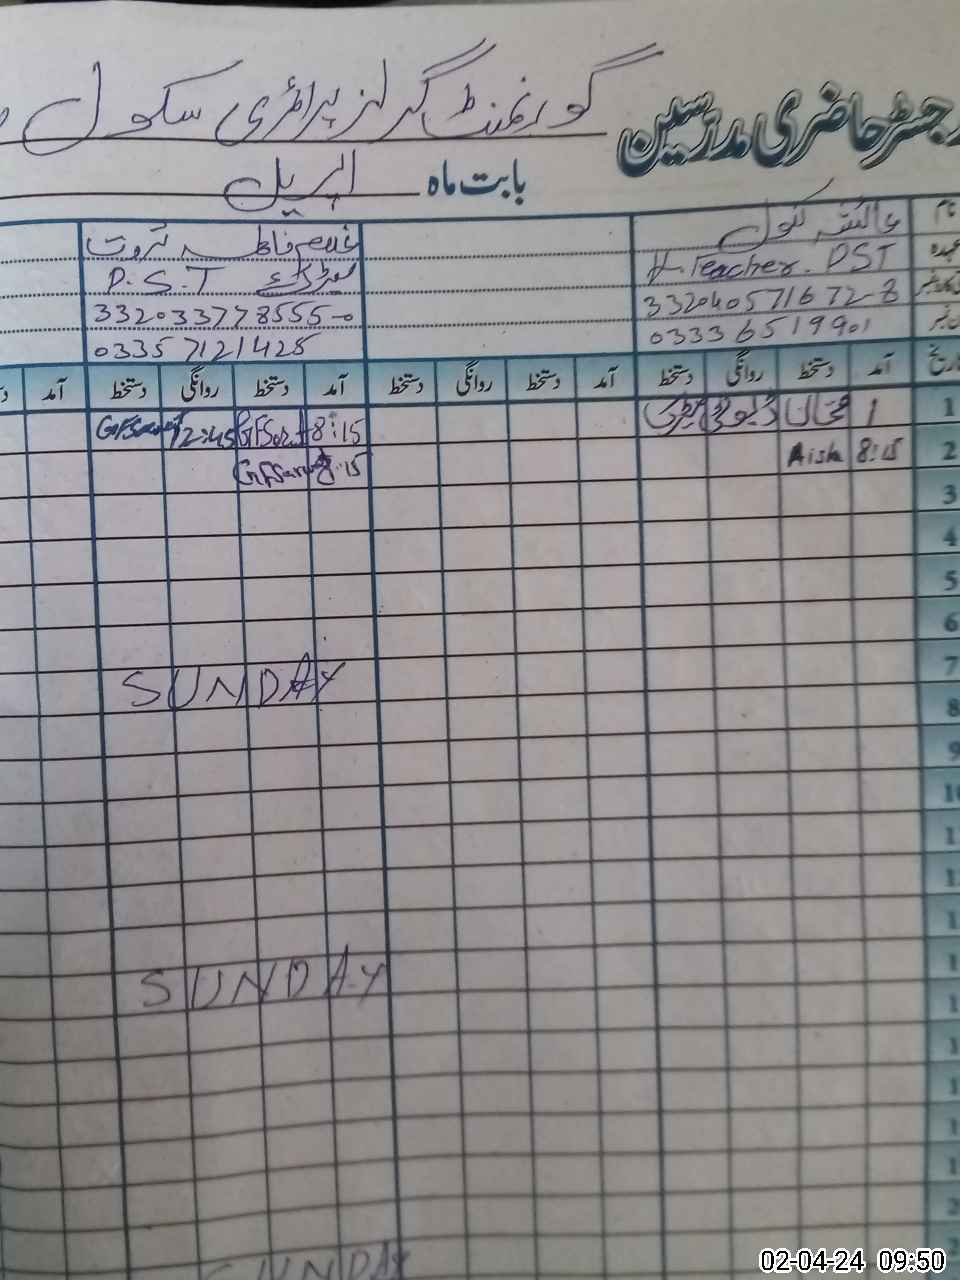 رجسٹر حاضری مدرسین گورنمنٹ گرلز پرائمری سکول
بابت ماہ اپریل
نام عائشہ کنول غلام فاطمہ ثروت
عہدہ H.Teacher. PST P.S.T
332040571672-8 332033778555-0
03336519901 03357121425
تاریخ آمد دستخط روانگی دستخط آمد دستخط روانگی دستخط آمد دستخط روانگی دستخط آمد
1 8:15 12:45
2 8:15 Aish 8:15
3
4
5
6
7 SUNDAY
8
9
SUNDAY
SUNDAY
02-04-24 09:50